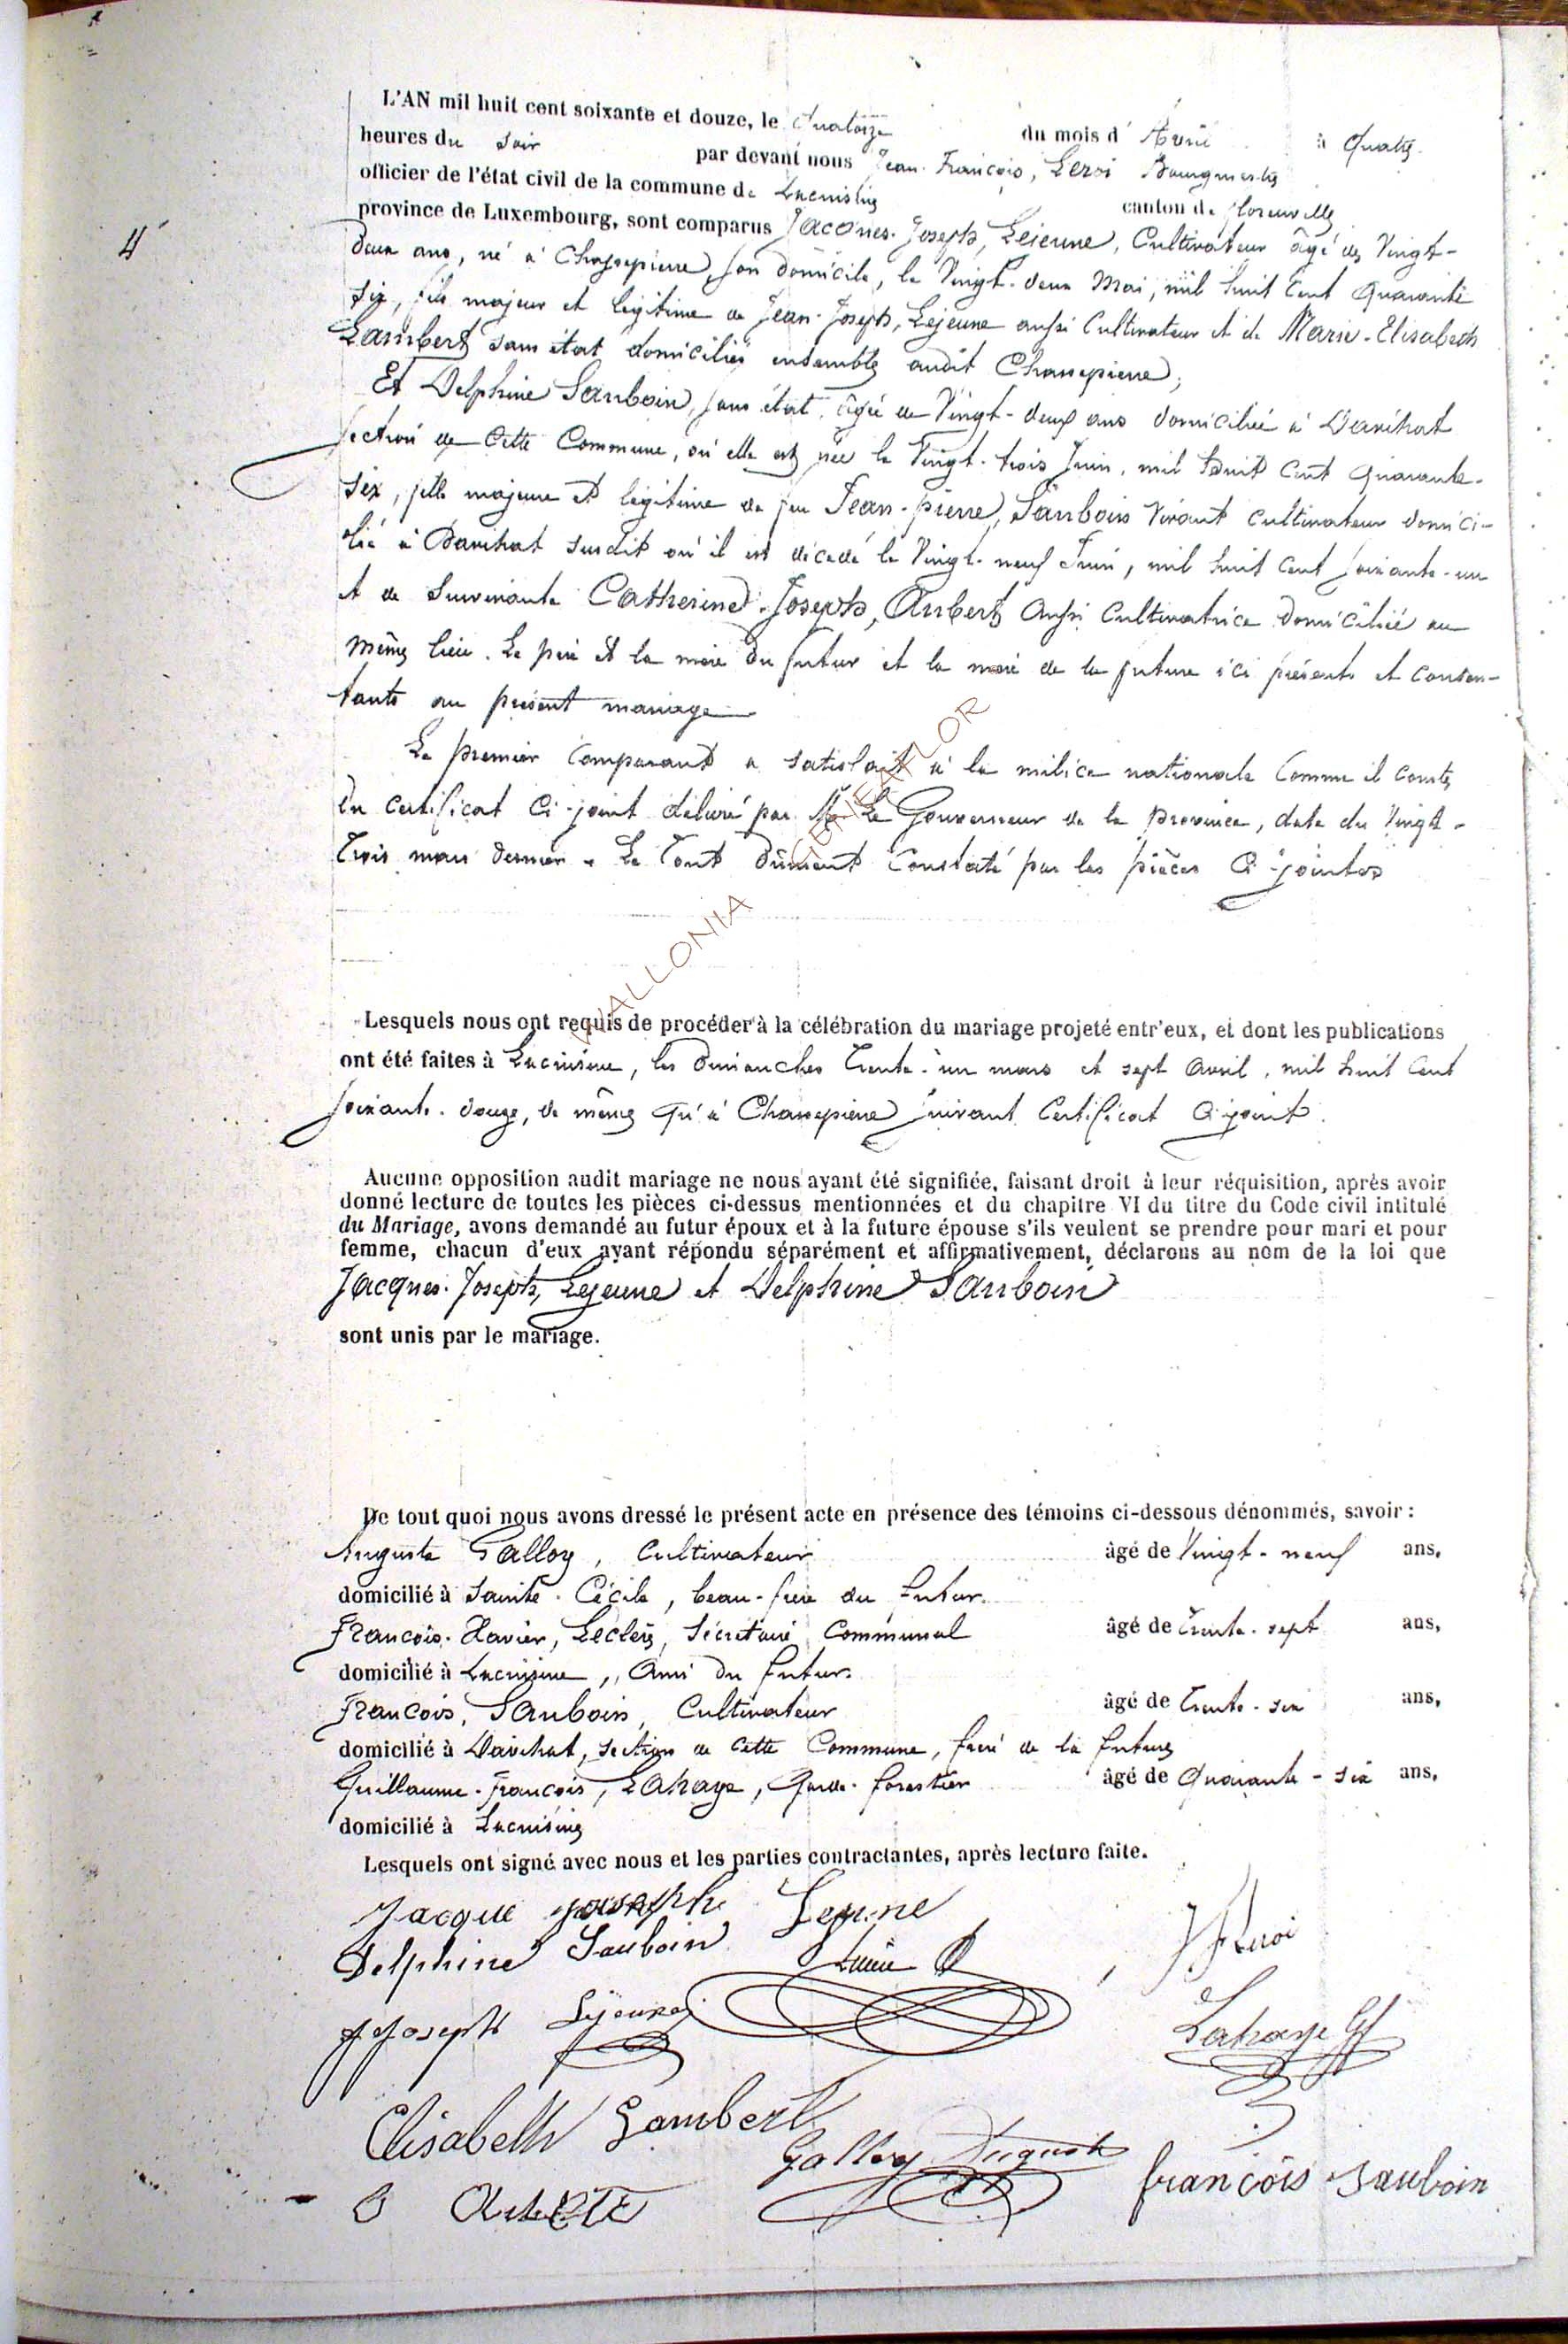 4
L'AN mil huit cent soixante et douze, le Quatorze du mois d' Avril à quatre
heures du soir par devant nous Jean-François, Leroi Bourgmestre
officier de l'état civil de la commune de Lacuisine canton de florenville
province de Luxembourg, sont comparus Jacques-Joseph, Lejeune, Cultivateur âgé de Vingt-
deux ans, né à Chassepierre, son domicile, le Vingt-deux Mai, mil huit Cent Quarante
six, fils majeur et légitime de Jean-Joseph, Lejeune aussi Cultivateur et de Marie-Elisabeth
Lambert sans état domiciliés ensemble audit Chassepierre;
Et Delphine Sauboin, sans état, âgée de Vingt-deux ans domiciliée à Danchat
section de Cette Commune, où elle est née le Vingt-trois Juin, mil huit Cent Quarante-
six, fille majeure et légitime de feu Jean-pierre, Sauboin Vivant cultivateur domici-
lié à Danchat susdit où il est décédé le Vingt-neuf Juin, mil huit Cent soixante-un
et de Survivante Catherine-Joseph, Aubert Aussi Cultivatrice domiciliée au
même lieu. Le père et la mère du futur et la mère de la future ici présents et consen-
tants au présent mariage
Le premier Comparant a satisfait à la milice nationale Comme il conste
du Certificat Ci-joint délivré par Mr Le Gouverneur de la province, date du Vingt-
Trois mars dernier. Le Tout dûment Constaté par les pièces Ci-jointes
WALLONIA GENEAFLOR
Lesquels nous ont requis de procéder à la célébration du mariage projeté entr'eux, et dont les publications
ont été faites à Lacuisine, les dimanches Trente-un mars et sept Avril, mil huit Cent
soixante-douze, de même qu'à Chassepierre suivant Certificat Ci-joint.
Aucune opposition audit mariage ne nous ayant été signifiée, faisant droit à leur réquisition, après avoir
donné lecture de toutes les pièces ci-dessus mentionnées et du chapitre VI du titre du Code civil intitulé
du Mariage, avons demandé au futur époux et à la future épouse s'ils veulent se prendre pour mari et pour
femme, chacun d'eux ayant répondu séparément et affirmativement, déclarons au nom de la loi que
Jacques-Joseph, Lejeune et Delphine Sauboin
sont unis par le mariage.
De tout quoi nous avons dressé le présent acte en présence des témoins ci-dessous dénommés, savoir :
Auguste Galloy, Cultivateur âgé de Vingt-neuf ans,
domicilié à Sainte-Cécile, beau-frère du futur.
François-Xavier, Leclerc, Sécrétaire Communal âgé de Trente-sept ans,
domicilié à Lacuisine, Ami du futur.
François, Sauboin, Cultivateur âgé de Trente-six ans,
domicilié à Danchat, section de Cette Commune, frère de la future
Guillaume-François, Lahaye, Garde-forestier âgé de Quarante-six ans,
domicilié à Lacuisine
Lesquels ont signé avec nous et les parties contractantes, après lecture faite.
Jacque joseph Lejeune
J F Leroi
Delphine Sauboin
J Joseph Lejeune
Lahaye Gf
Elisabeth Lambert
Galloy Auguste
françois Sauboin